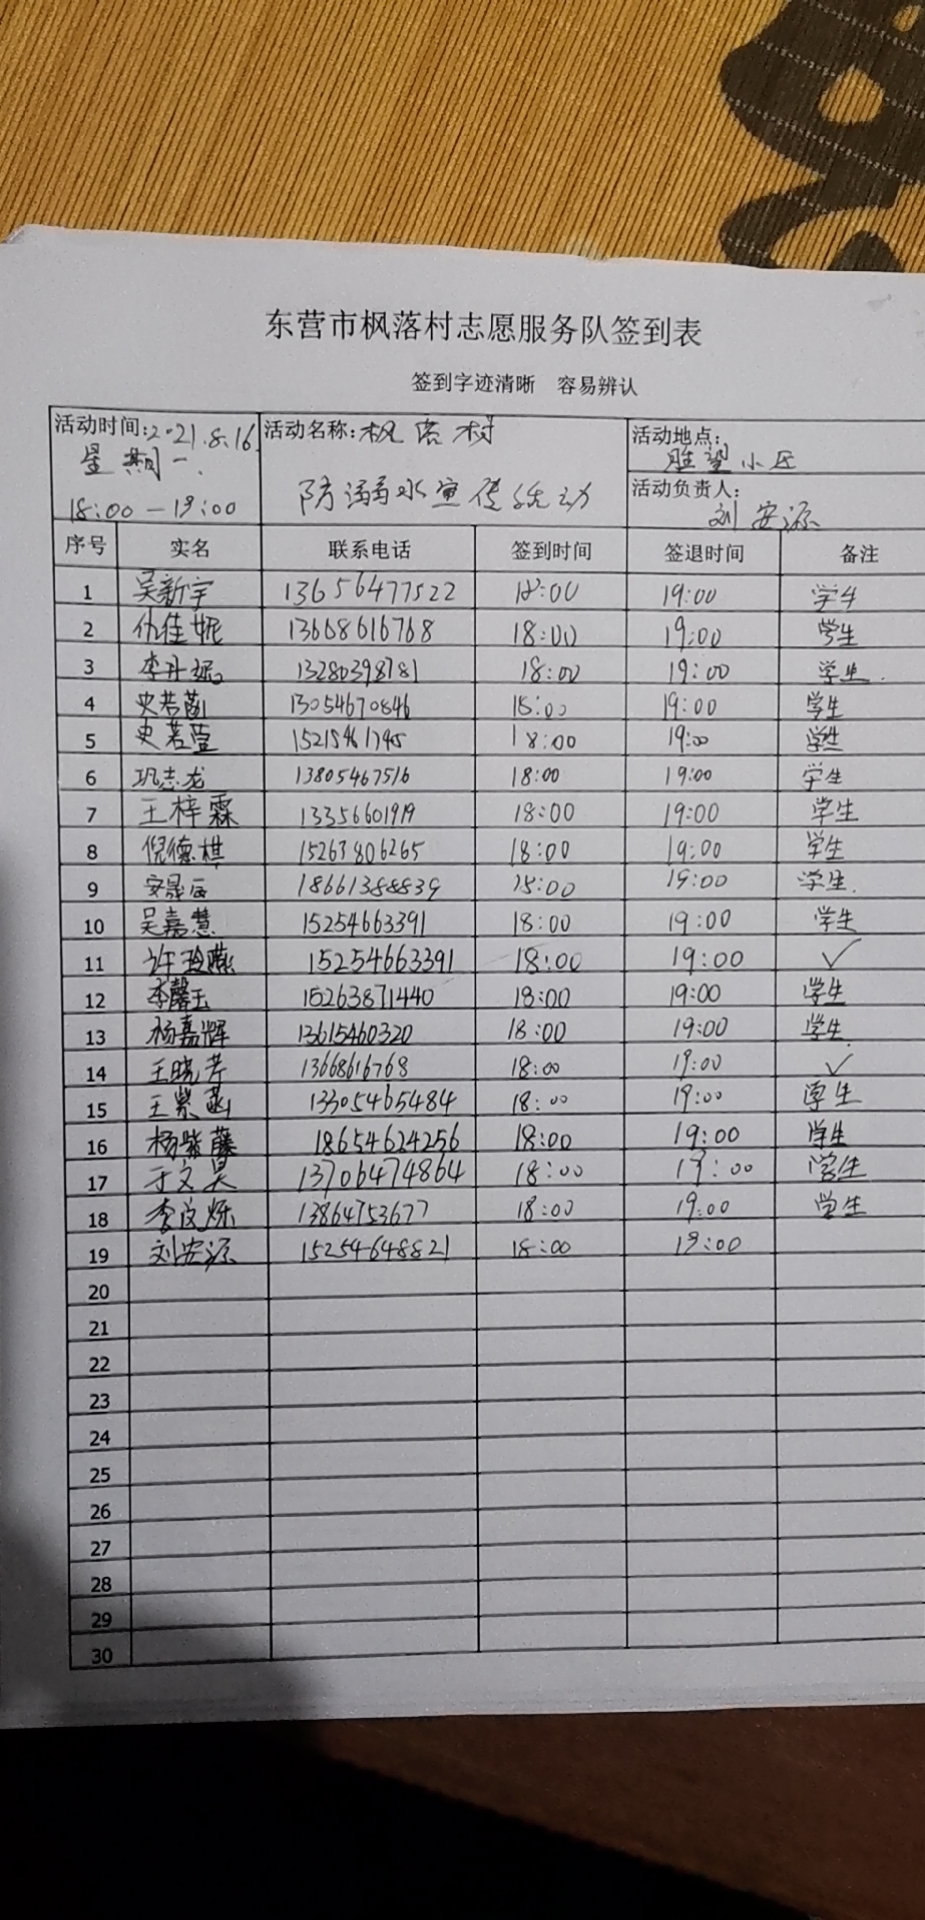 东营市枫落村志愿服务队签到表
签到字迹清晰 容易辨认
活动时间:2021.8.16 活动名称:枫落村 活动地点:
星期一. 胜望小区
防溺水宣传活动 活动负责人:
18:00-19:00 刘安源
序号 实名 联系电话 签到时间 签退时间 备注
1 吴新宇 13656477522 18:00 19:00 学生
2 仇佳妮 13668616768 18:00 19:00 学生
3 李丹妮 13280398781 18:00 19:00 学生.
4 史若菡 13054670846 18:00 19:00 学生
5 史若萱 15215461745 18:00 19:00 学生
6 巩志龙 13805467516 18:00 19:00 学生
7 王梓霖 13356601919 18:00 19:00 学生
8 倪德棋 15263806265 18:00 19:00 学生
9 安晟辰 18661388839 18:00 19:00 学生.
10 吴嘉慧 15254663391 18:00 19:00 学生
11 许玲燕 15254663391 18:00 19:00 ✓
12 李馨玉 15263871440 18:00 19:00 学生
13 杨嘉辉 13615460320 18:00 19:00 学生.
14 王晓芳 13668616768 18:00 19:00 ✓
15 王紫菡 13305465484 18:00 19:00 学生
16 杨紫藤 18654624256 18:00 19:00 学生
17 于文昊 13706474864 18:00 19:00 学生
18 李 烁 13864753677 18:00 19:00 学生
19 刘安源 15254648821 18:00 19:00
20
21
22
23
24
25
26
27
28
29
30